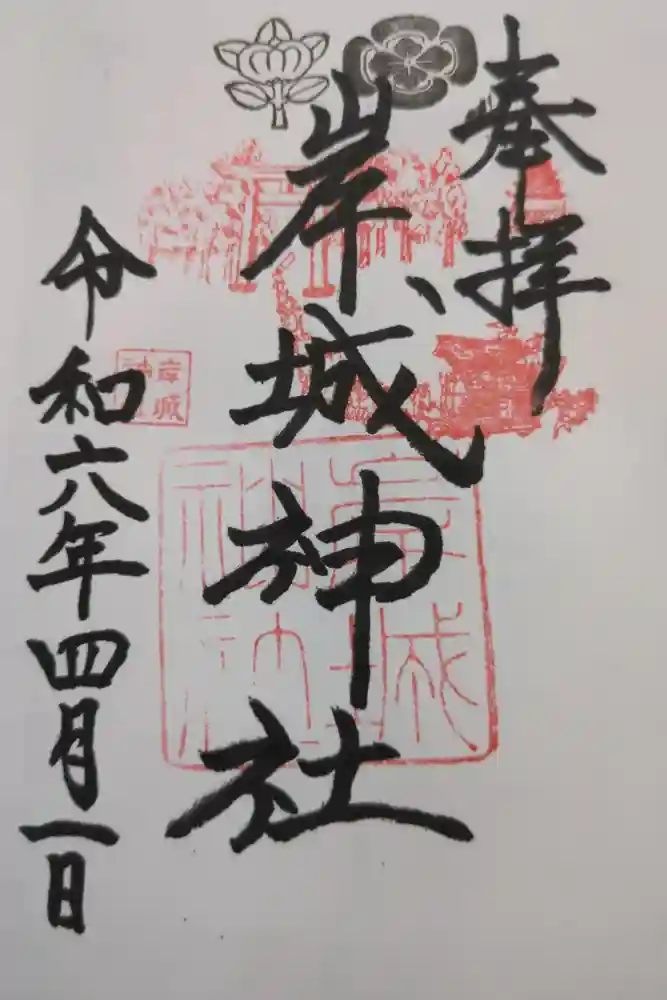 奉拝
岸城神社
令和六年四月一日
岸城
神社
岸城
神社